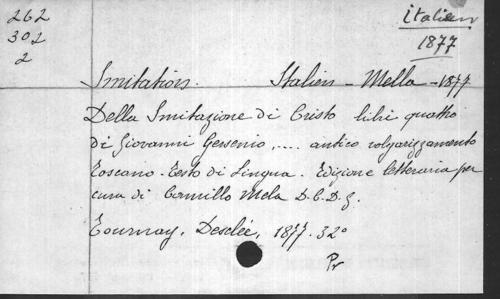 262
302
2
italien
1877
Imitations. Italien - Mella - 1877
Della Imitazione di Cristo libri quattro
di Giovanni Gersenio, .... antico volgarizzamento
Toscano. Testo di Lingua. Edizione letteraria per
cura di Camillo Mela D.C.D.G.
Tournay, Desclée, 1877. 32°
Pr